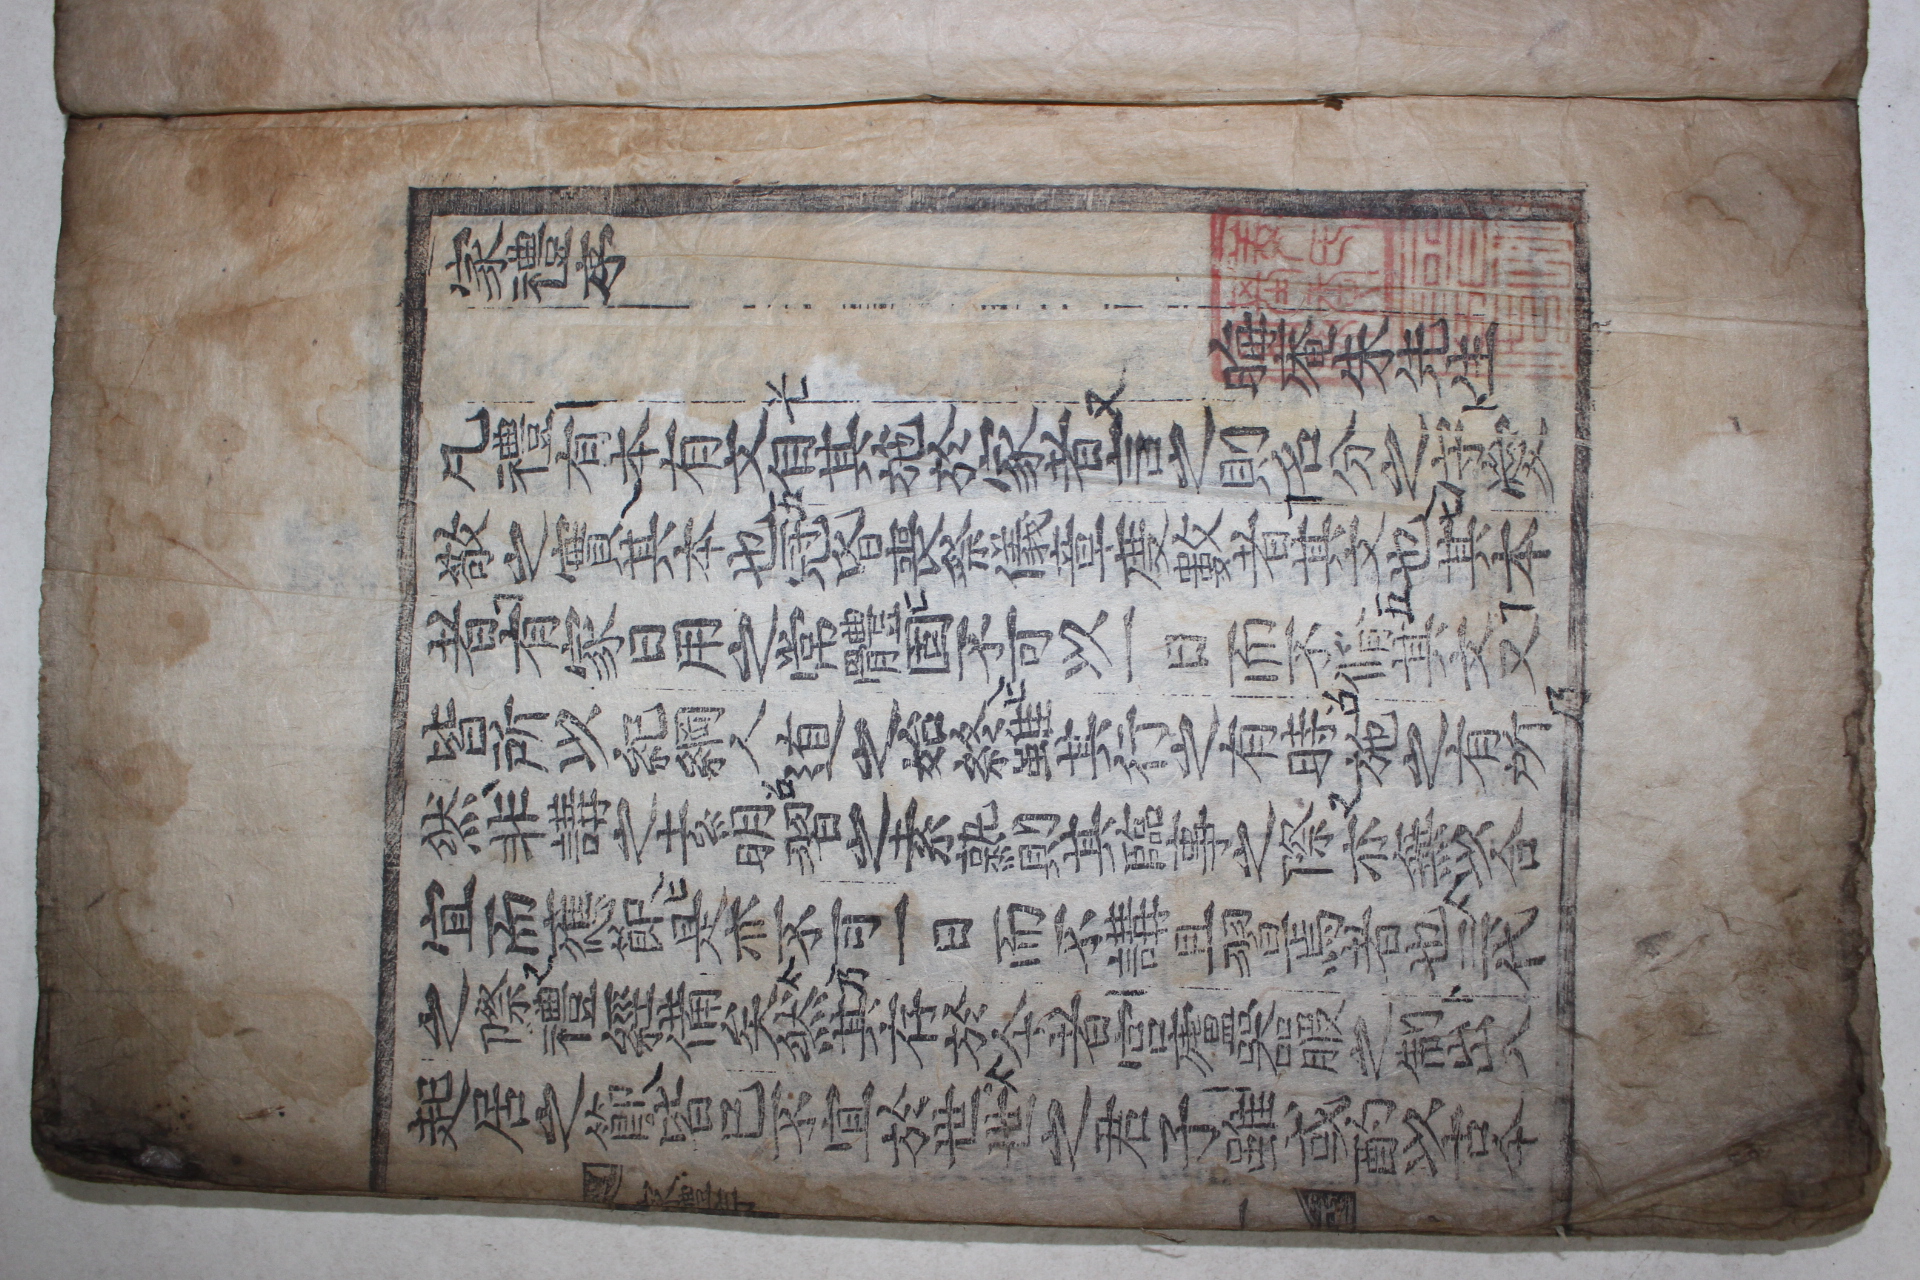 家禮序
晦庵朱先生
凡禮有本有文自其施於家者言之則名分之守愛
敬之實其本也冠昏喪祭儀章度數者其文也其本
者有家日用之常體固不可以一日而不脩其文又
皆所以紀綱人道之始終雖其行之有時施之有所
然非講之素明習之素熟則其臨事之際亦無以合
宜而應節是亦不可一日而不講且習焉者也三代
之際禮經備矣然其存於今者宮廬器服之制出入
起居之節皆已不宜於世世之君子雖或酌以古今
家禮序
一